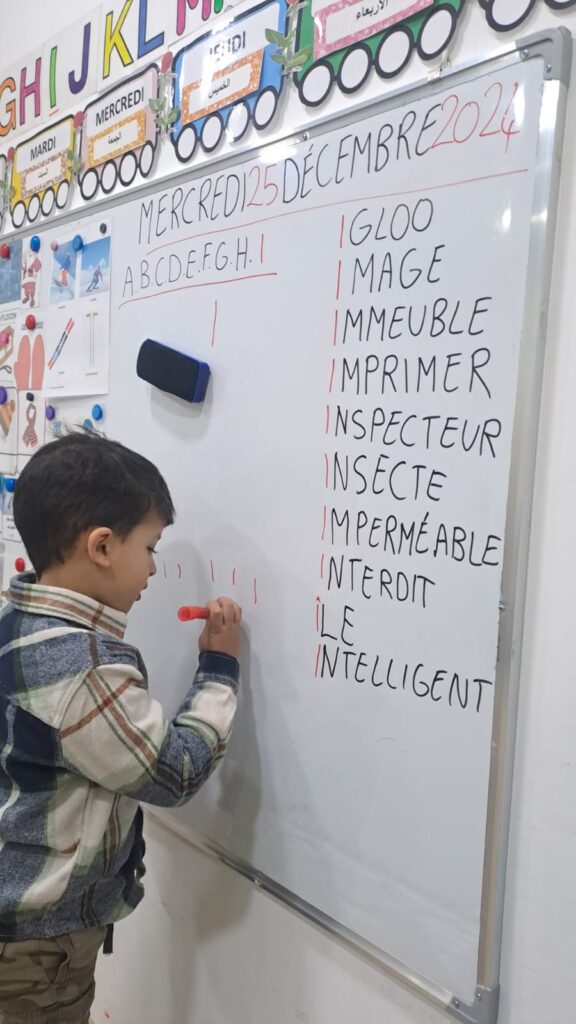 GHIJKLM
MARDI
السبت
MERCREDI
الجمعة
JEUDI
الخميس
الأربعاء
MERCREDI 25 DÉCEMBRE 2024
A.B.C.D.E.F.G.H. I
I
IGLOO
IMAGE
IMMEUBLE
IMPRIMER
INSPECTEUR
INSECTE
IMPERMÉABLE
INTERDIT
ÎLE
INTELLIGENT
I I I I I
FLOCON